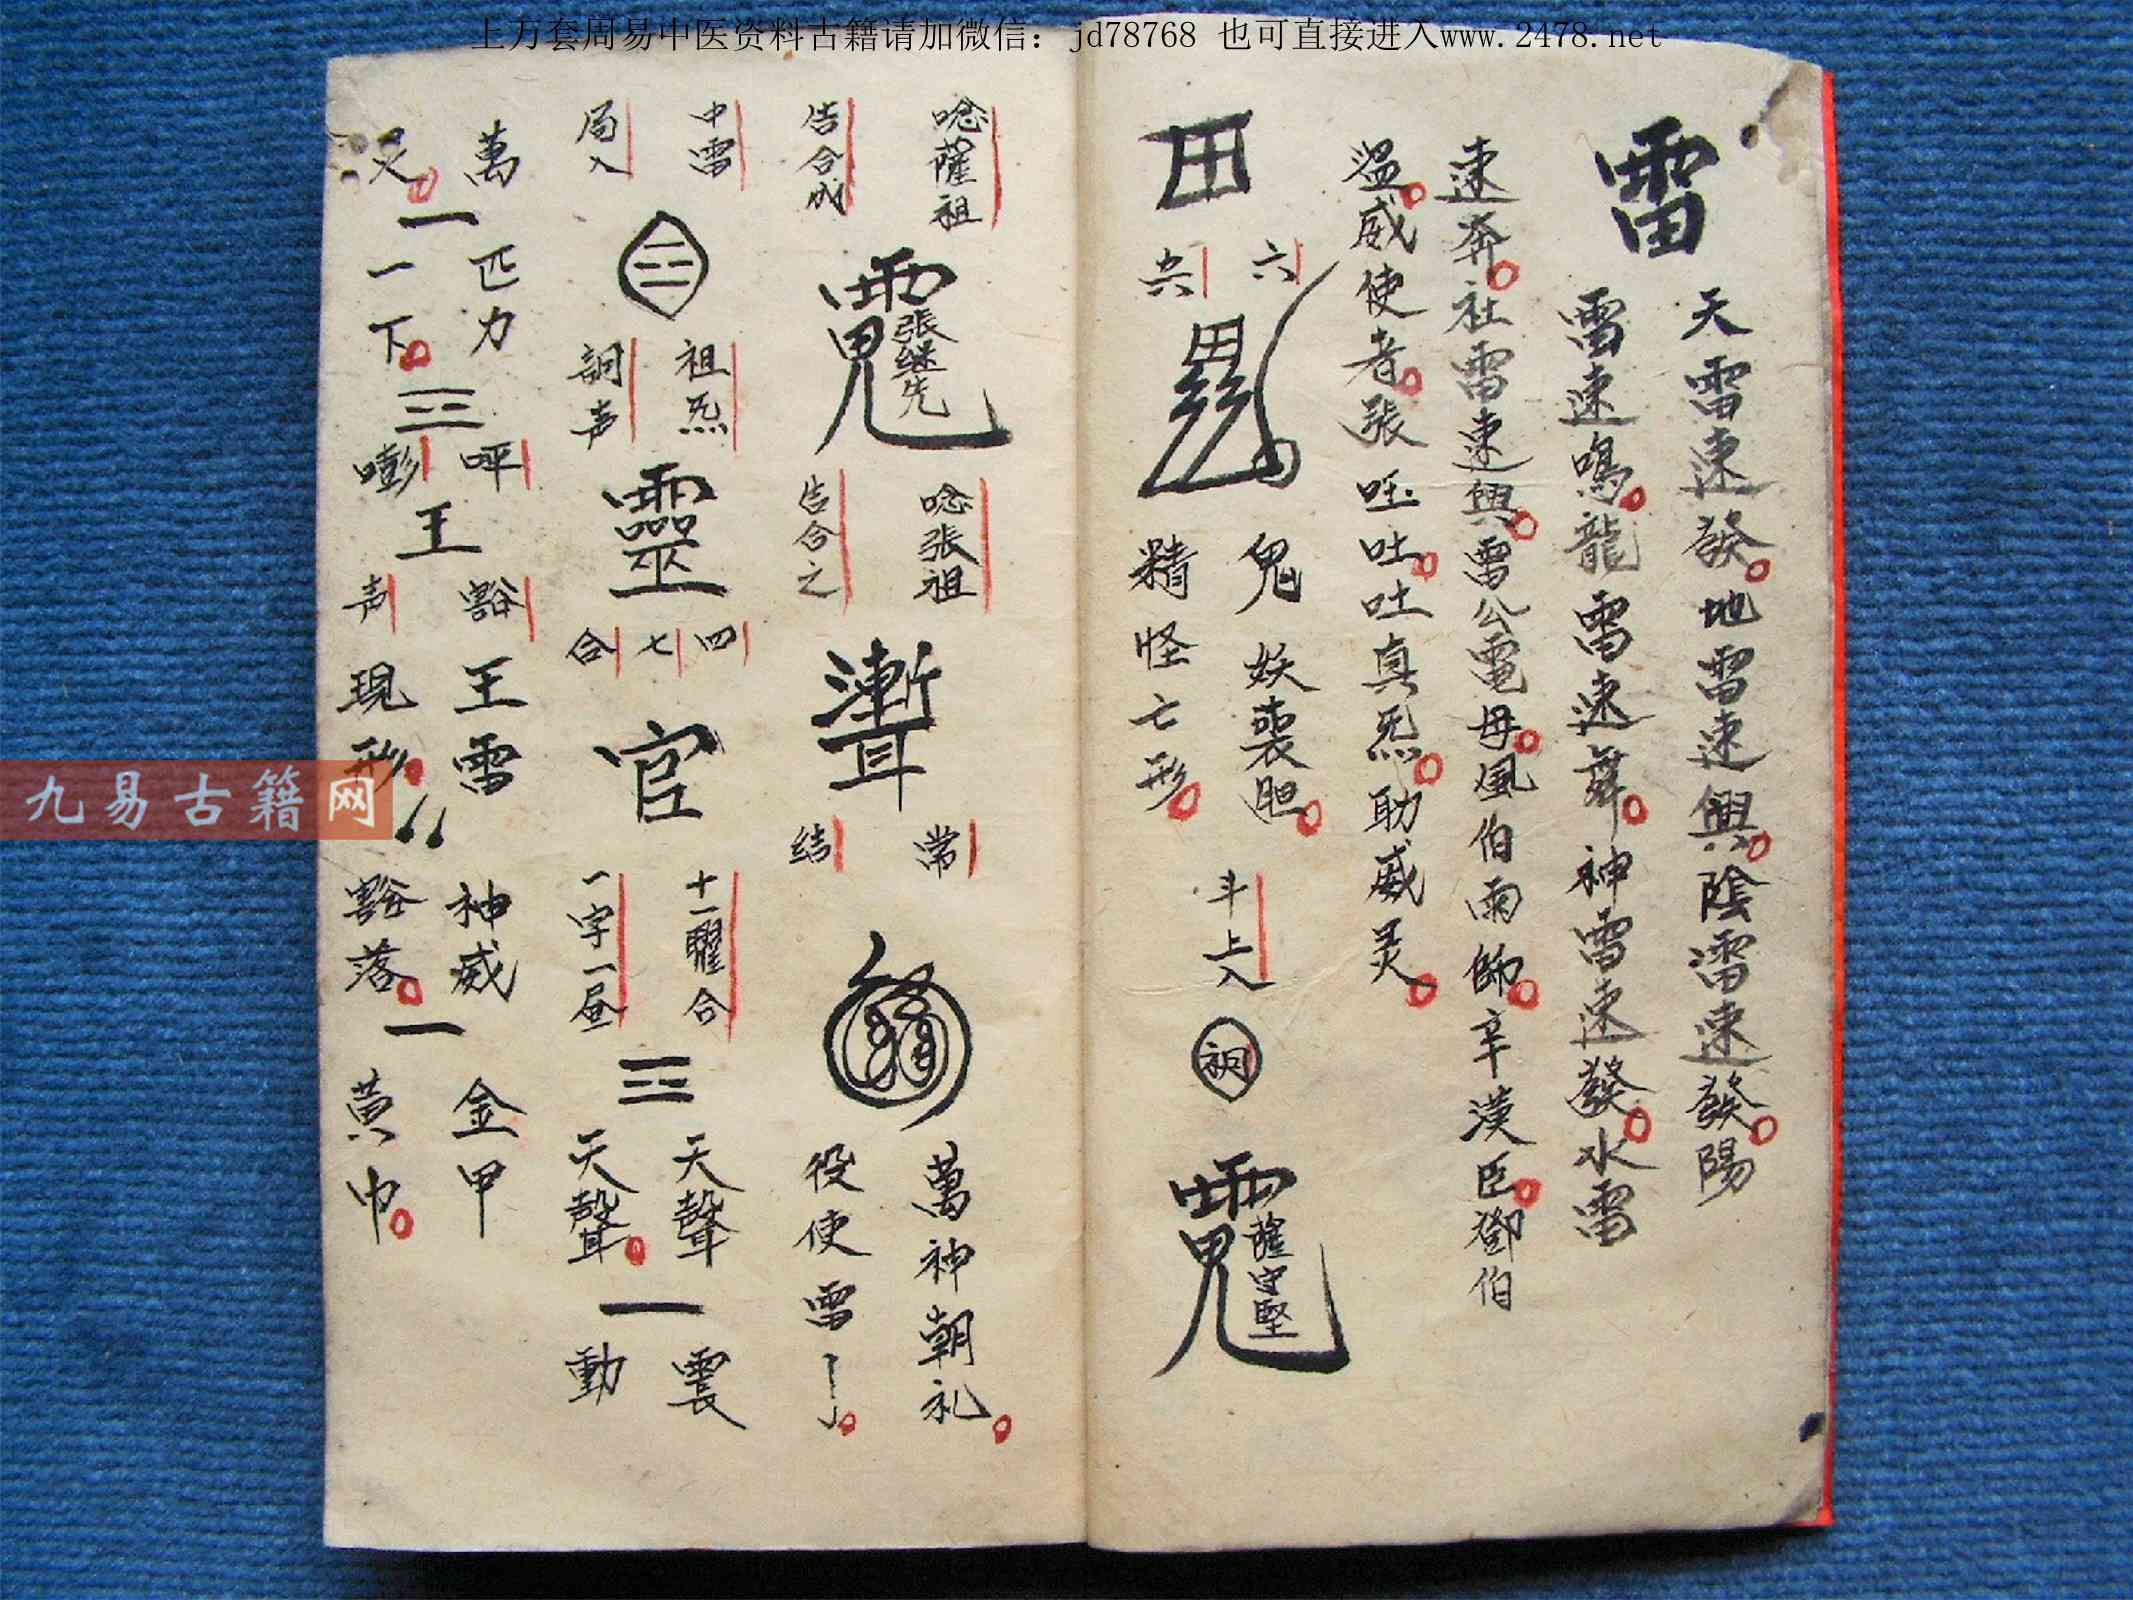 上万套周易中医资料古籍请加微信：jd78768 也可直接进入www.2478.net
雷
天雷速發地雷速興陰雷速發陽
雷速鳴龍雷速舞神雷速發水雷
速奔社雷速興雷公電母風伯雨師辛漢臣鄧伯
溫威使者張 吐吐真炁助威灵
六
鬼妖喪胆
精怪亡形
斗上入
薩守堅
唸薩祖
告合成
張继先
唸張祖
告合之
常
结
萬神朝礼
役使雷了
中雷
局入
祖炁
詞声
靈
四
七
合
官
十一曜合
一字一昼
三
天聲
天聲
一
震
動
萬
灵
一
匹力
一下
三
呯
嘭
王
豁
声
王雷
現形
神威
豁落
一
金甲
黄巾
九易古籍网